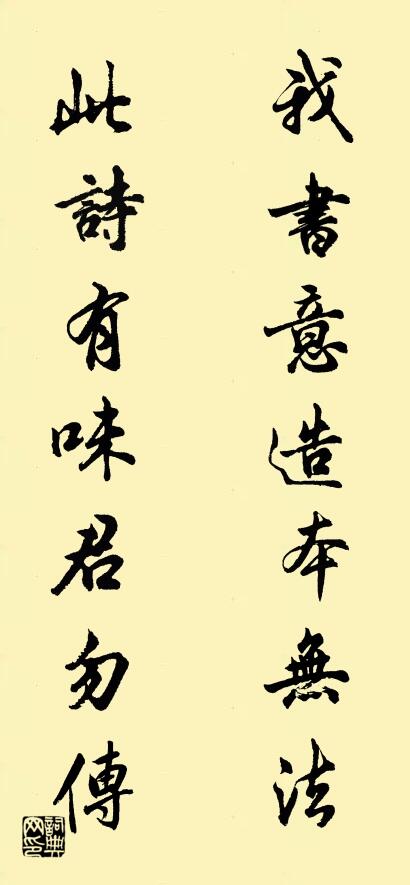 我書意造本無法
此詩有味君勿傳
詞典网印